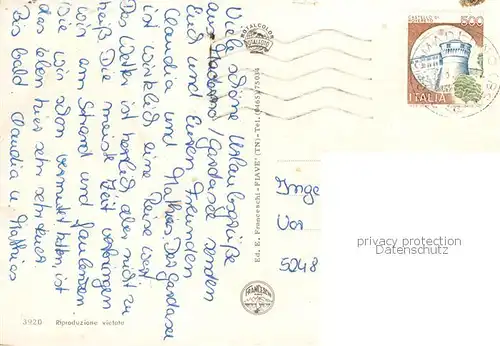 Viele schöne Urlaubsgrüße
aus Maderno/Gardasee senden
Euch und Euren Freunden
Claudia und Mathias. Der Gardasee
ist wirklich eine Reise wert.
Das Wetter ist herrlich aber nicht zu
heiß. Die meiste Zeit verbringen
wir am Strand und faulenzen.
Wie wir schon vermutet hatten, ist
das Leben hier sehr sehr teuer.
Bis bald. Claudia u. Mathias
3920 Riproduzione vietata
Ed. E. Franceschi - FIAVE' (TN) - Tel. (0465) 75034
ROTALCOLOR
ROTALFOTO
FRANCESCHI
CASTELLO DI
500
ITALIA
Inge
Vor
5248
privacy protection
Datenschutz